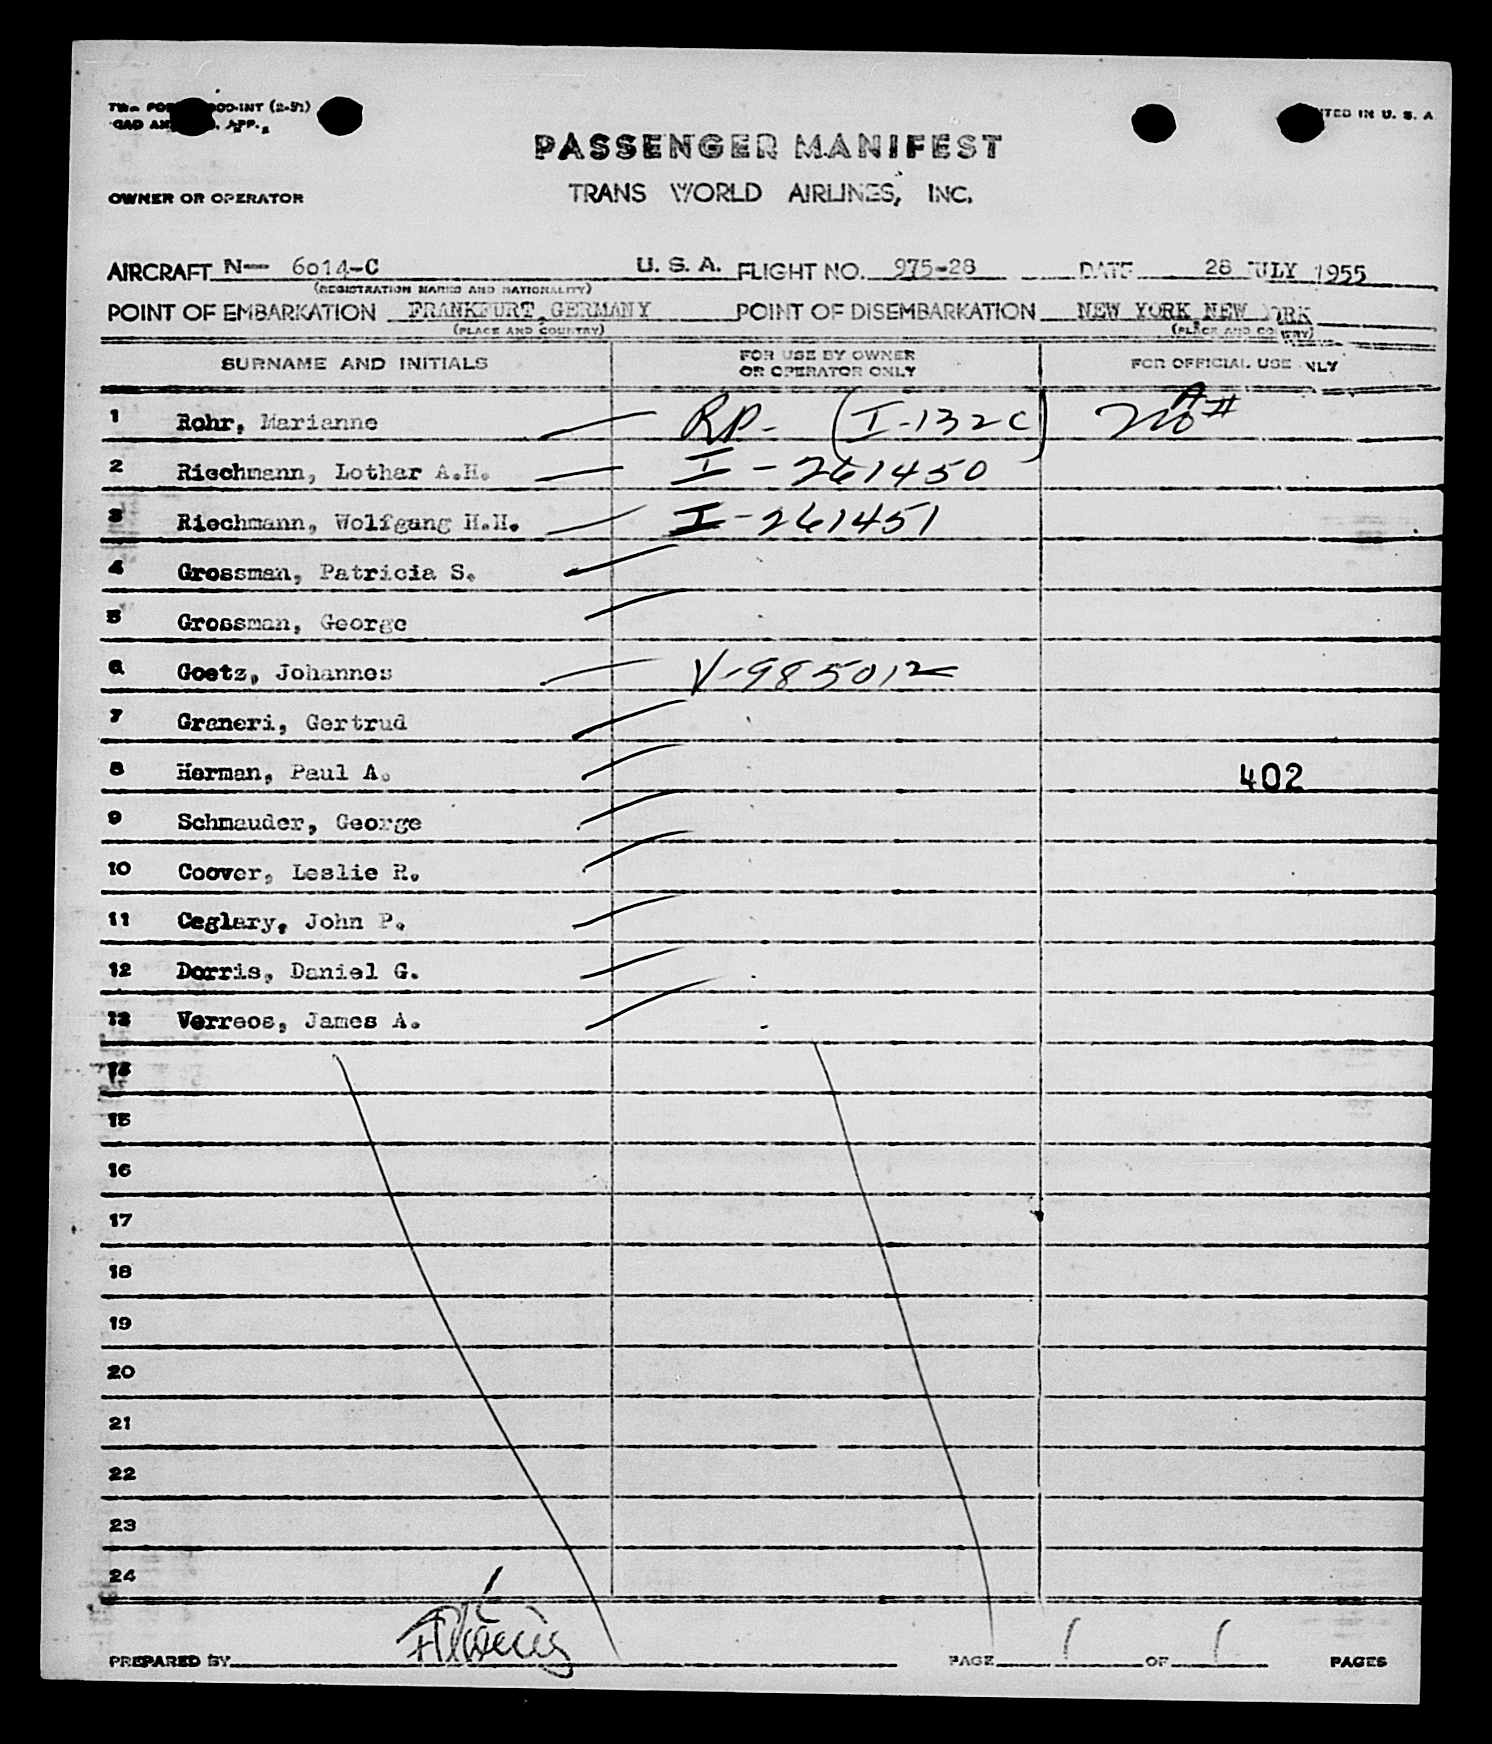 (2-51)
PRINTED IN U. S. A
PASSENGER MANIFEST
OWNER OR OPERATOR TRANS WORLD AIRLINES, INC.
AIRCRAFT N— 6014-C U. S. A. FLIGHT NO. 975-28 DATE 28 JULY 1955
(REGISTRATION MARKS AND NATIONALITY)
POINT OF EMBARKATION FRANKFURT, GERMANY POINT OF DISEMBARKATION NEW YORK NEW YORK
(PLACE AND COUNTRY) (PLACE AND COUNTRY)
SURNAME AND INITIALS FOR USE BY OWNER OR OPERATOR ONLY FOR OFFICIAL USE ONLY
1 Rohr, Marianne RP- (I-132C) No A#
2 Riechmann, Lothar A.H. I-261450
3 Riechmann, Wolfgang H.H. I-261451
4 Grossman, Patricia S.
5 Grossman, George
6 Goetz, Johannes V-985012
7 Graneri, Gertrud
8 Herman, Paul A. 402
9 Schmauder, George
10 Coover, Leslie R.
11 Ceglary, John P.
12 Dorris, Daniel G.
13 Verreos, James A.
14
15
16
17
18
19
20
21
22
23
24
PREPARED BY PAGE 1 OF 1 PAGES